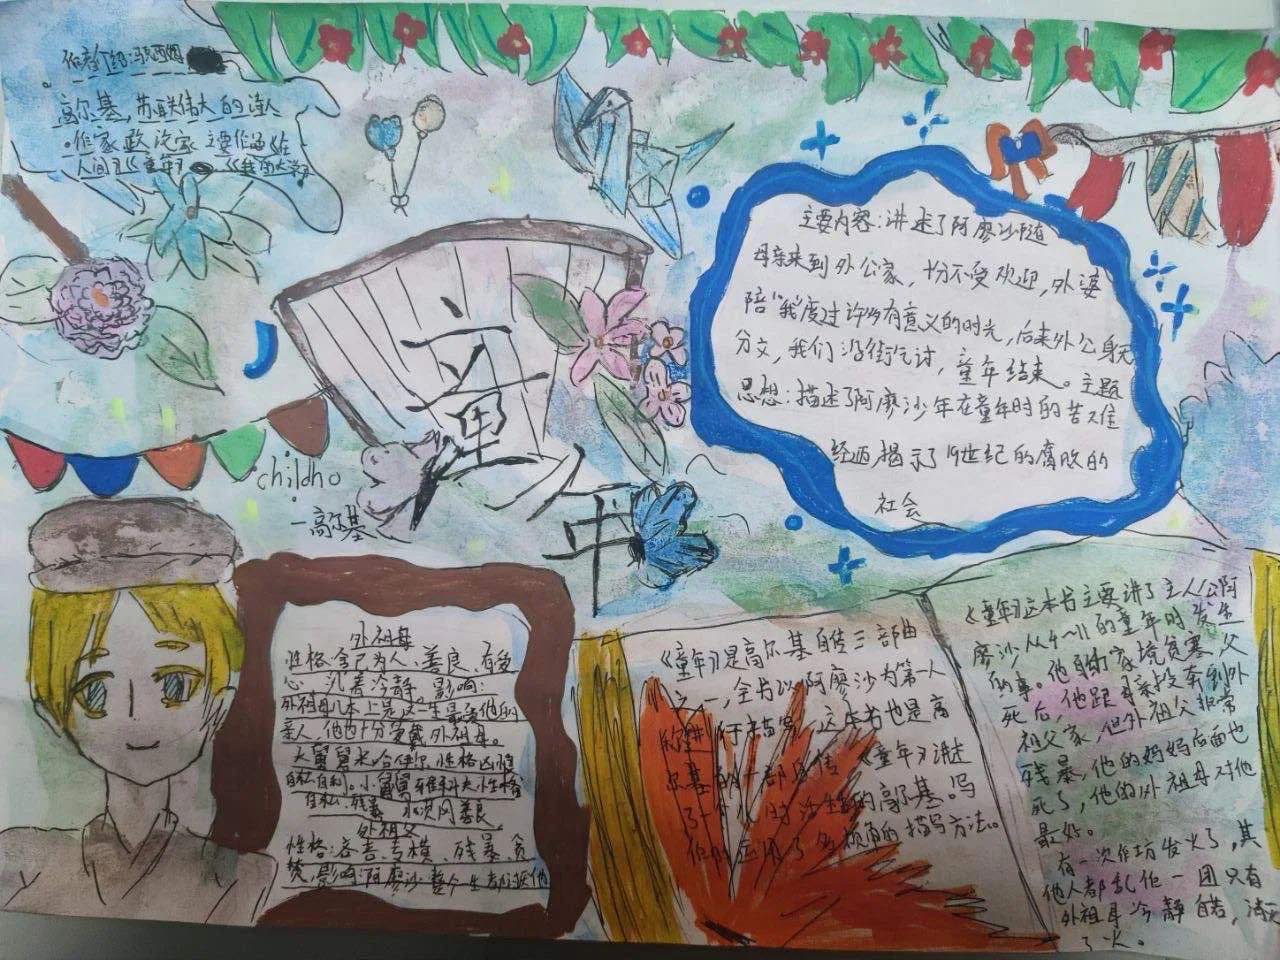 作者介绍:
高尔基，苏联伟大的诗人
作家政治家 主要作品《在
人间》《童年》《我的大学》
童年
childho
—高尔基
主要内容:讲述了阿廖沙随
母亲来到外公家，十分不受欢迎，外婆
陪"我"度过许多有意义的时光，后来外公身无
分文，我们沿街乞讨，童年结束。主题
思想:描述了阿廖沙年在童年时的苦难
经历揭示了19世纪的腐败的
社会
外祖母
性格:舍己为人、善良、有爱
心、沉着冷静。影响:
外祖母几本上是这一生最爱他的
亲人，他也十分爱戴外祖母。
大舅舅米哈伊尔，性格凶狠
自私自利。小舅舅雅科夫性格
自私,残暴 小茨冈善良
外祖父
性格:吝啬、专横、残暴、贪
婪,影响:阿廖沙整个一生都被他
《童年》是高尔基自传三部曲
之一，全书以阿廖沙为第一人
称进行描写，这本书也是高
尔基的一部自传《童年》讲述
了一个儿时活生生的高尔基。吗
他运用了多视角的描写方法。
《童年》这本书主要讲了主人公阿
廖沙从4~11的童年时发生
的事。他自幼家境贫寒父
死后，他跟母亲投奔到外
祖父家，但外祖父非常
残暴，他的妈妈后面也
死了，他的外祖母对他
最好。
有一次作坊发火了，其
他人都乱作一团只有
外祖母冷静的，
了火。